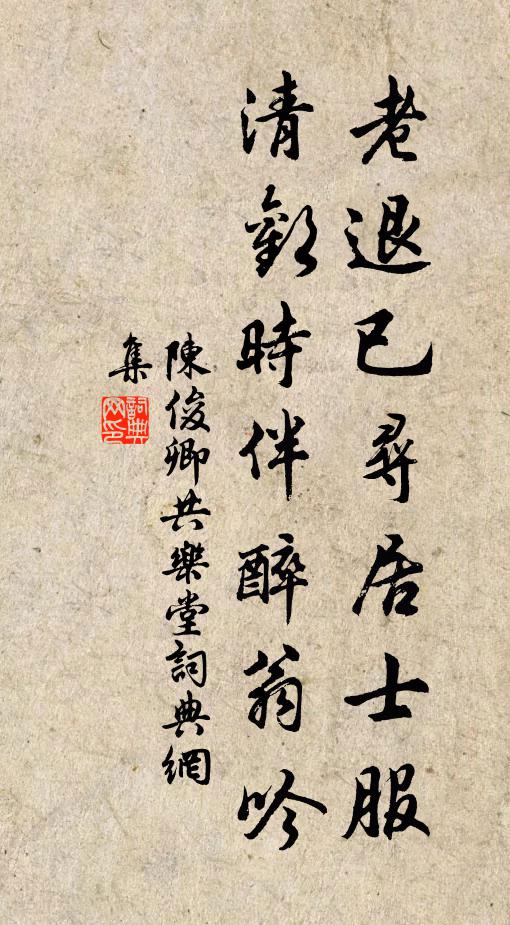 老退已尋居士服
清歡時伴醉翁吟
陳俊卿共樂堂詞典網
集
詞典
网印